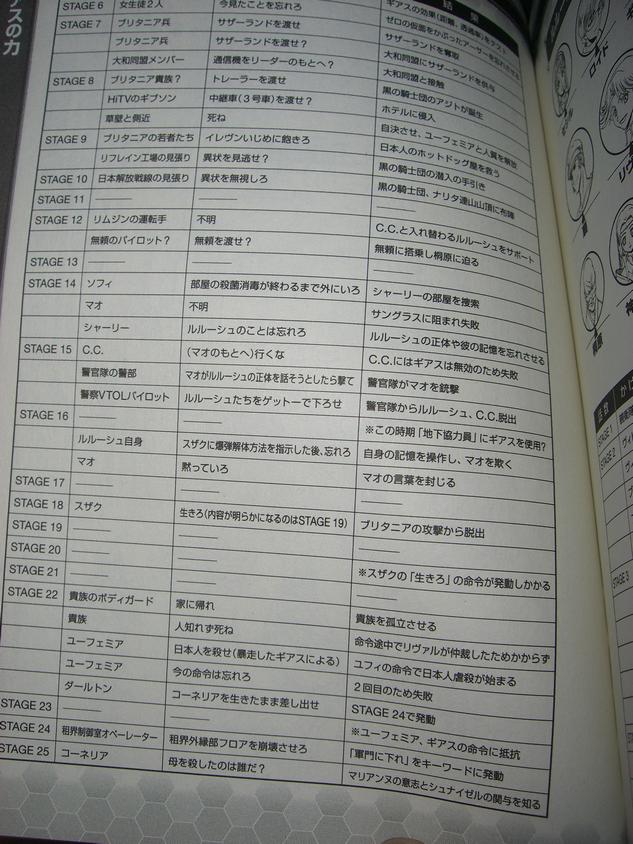 アスの力
結果
ギアスの効果(距離、透過率)をテスト
STAGE 6 女生徒2人 今見たことを忘れろ ゼロの仮面をかぶったアーサーを忘れさせる
STAGE 7 ブリタニア兵 サザーランドを渡せ サザーランドを奪取
ブリタニア兵 サザーランドを渡せ? 大和同盟にサザーランドを供与
大和同盟メンバー 通信機をリーダーのもとへ? 大和同盟と接触
STAGE 8 ブリタニア貴族? トレーラーを渡せ 黒の騎士団のアジトが誕生
HiTVのギブソン 中継車(3号車)を渡せ? ホテルに侵入
草壁と側近 死ね 自決させ、ユーフェミアと人質を解放
STAGE 9 ブリタニアの若者たち イレヴンいじめに飽きろ 日本人のホットドッグ屋を救う
リフレイン工場の見張り 異状を見逃せ? 黒の騎士団の潜入の手引き
STAGE 10 日本解放戦線の見張り 異状を無視しろ 黒の騎士団、ナリタ連山山頂に布陣
STAGE 11 ——— ——— ———
STAGE 12 リムジンの運転手 不明 C.C.と入れ替わるルルーシュをサポート
無頼のパイロット? 無頼を渡せ? 無頼に搭乗し桐原に迫る
STAGE 13 ——— ——— ———
STAGE 14 ソフィ 部屋の殺菌消毒が終わるまで外にいろ シャーリーの部屋を捜索
マオ 不明 サングラスに阻まれ失敗
シャーリー ルルーシュのことは忘れろ ルルーシュの正体や彼の記憶を忘れさせる
STAGE 15 C.C. (マオのもとへ)行くな C.C.にはギアスは無効のため失敗
警官隊の警部 マオがルルーシュの正体を話そうとしたら撃て 警官隊がマオを銃撃
警察VTOLパイロット ルルーシュたちをゲットーで下ろせ 警官隊からルルーシュ、C.C.脱出
STAGE 16 ——— ——— ※この時期「地下協力員」にギアスを使用?
ルルーシュ自身 スザクに爆弾解体方法を指示した後、忘れろ 自身の記憶を操作し、マオを欺く
マオ 黙っていろ マオの言葉を封じる
STAGE 17 ——— ——— ———
STAGE 18 スザク 生きろ(内容が明らかになるのはSTAGE 19) ブリタニアの攻撃から脱出
STAGE 19 ——— ——— ———
STAGE 20 ——— ——— ※スザクの「生きろ」の命令が発動しかかる
STAGE 21 ——— ——— ———
STAGE 22 貴族のボディガード 家に帰れ 貴族を孤立させる
貴族 人知れず死ね 命令途中でリヴァルが仲裁したためかからず
ユーフェミア 日本人を殺せ(暴走したギアスによる) ユフィの命令で日本人虐殺が始まる
ユーフェミア 今の命令は忘れろ 2回目のため失敗
ダールトン コーネリアを生きたまま差し出せ STAGE 24で発動
STAGE 23 ——— ——— ※ユーフェミア、ギアスの命令に抵抗
STAGE 24 租界制御室オペレーター 租界外縁部フロアを崩壊させろ 「軍門に下れ」をキーワードに発動
STAGE 25 コーネリア 母を殺したのは誰だ? マリアンヌの意志とシュナイゼルの関与を知る
ロイド
桐原
話数
STAGE 1
STAGE 2
STAGE 3